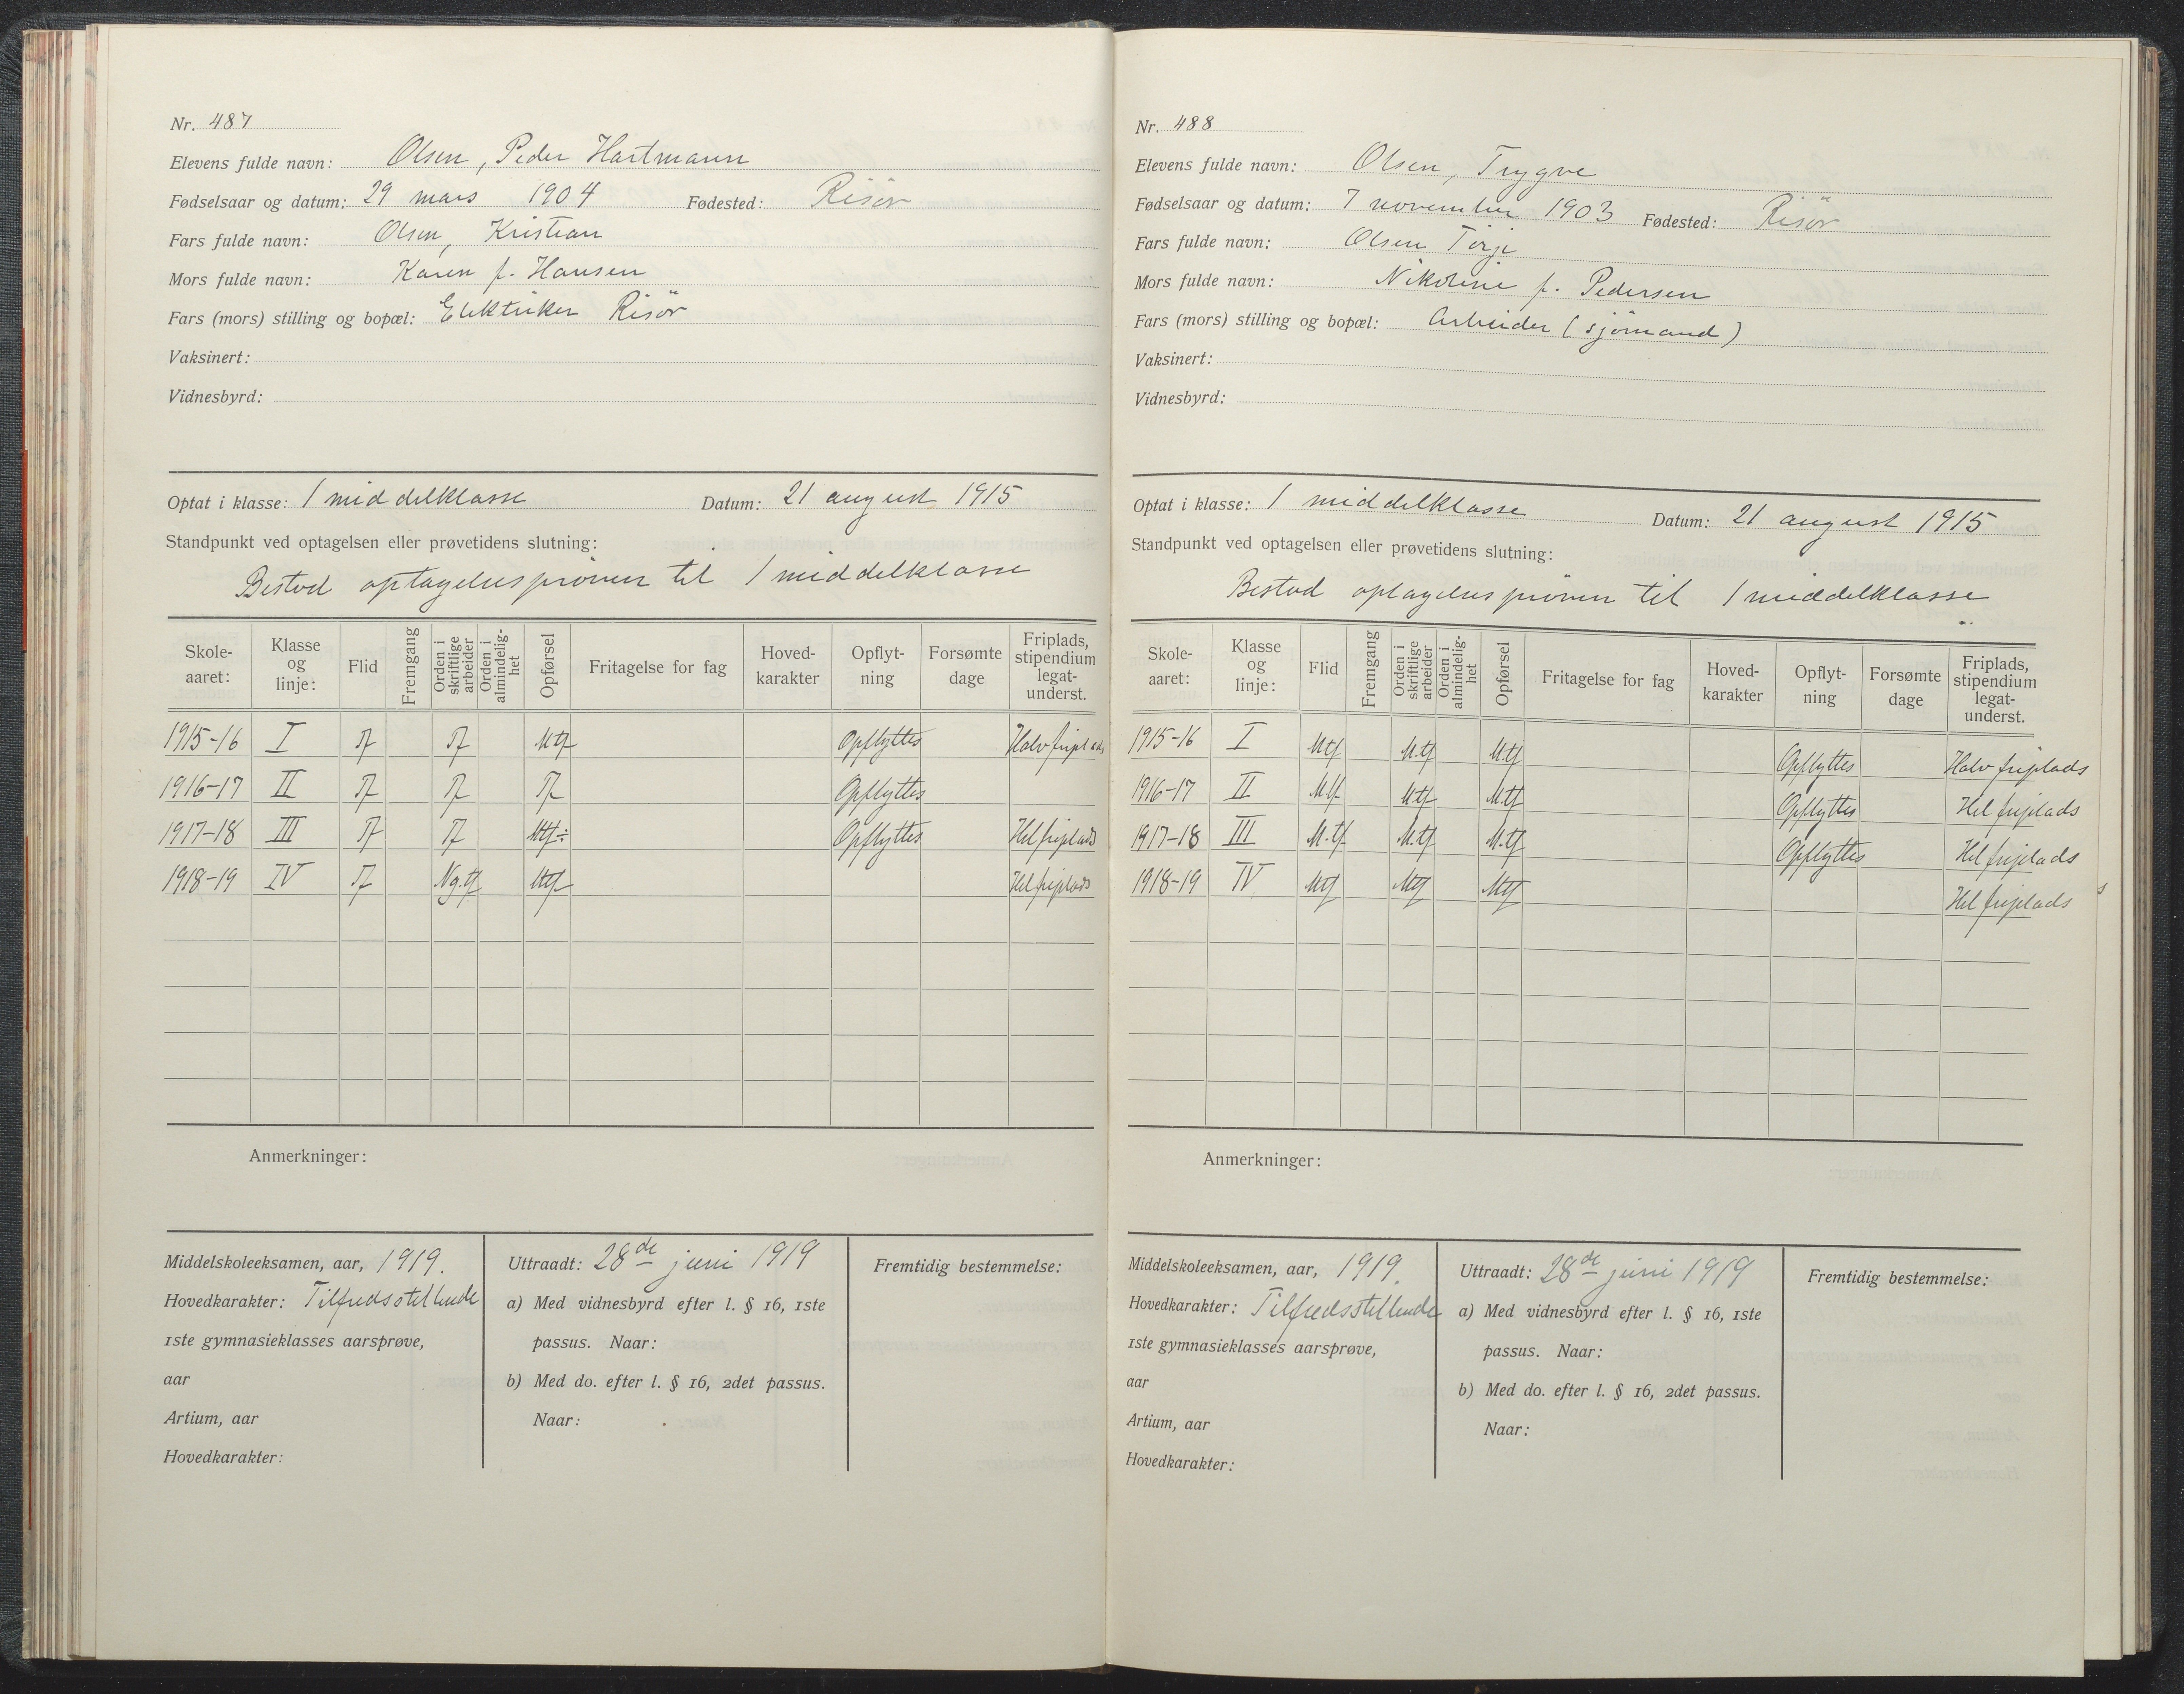 Nr. 487
Elevens fulde navn: Olsen, Peder Hartmann
Fødselsaar og datum: 29 mars 1904 Fødested: Risör
Fars fulde navn: Olsen, Kristian
Mors fulde navn: Karen f. Hansen
Fars (mors) stilling og bopæl: Elektriker Risör
Vaksinert:
Vidnesbyrd:
Optat i klasse: 1 middelklasse Datum: 21 august 1915
Standpunkt ved optagelsen eller prøvetidens slutning:
Bestod optagelsespröven til 1 middelklasse
Skole-aaret: Klasse og linje: Flid Fremgang Orden i skriftlige arbeider Orden i almindelig-het Opførsel Fritagelse for fag Hoved-karakter Opflyt-ning Forsømte dage Friplads, stipendium legat-underst.
1915-16 I Tf Tf Mtf Opflyttes Halv friplads
1916-17 II Tf Tf Tf Opflyttes
1917-18 III Tf Tf Mtf÷ Opflyttes Hel friplads
1918-19 IV Tf Ng.tf Mtf Hel friplads
Anmerkninger:
Middelskoleeksamen, aar, 1919.
Hovedkarakter: Tilfredsstillende
1ste gymnasieklasses aarsprøve,
aar
Artium, aar
Hovedkarakter:
Uttraadt: 28de juni 1919
a) Med vidnesbyrd efter l. § 16, 1ste
passus. Naar:
b) Med do. efter l. § 16, 2det passus.
Naar:
Fremtidig bestemmelse:
Nr. 488
Elevens fulde navn: Olsen, Trygve
Fødselsaar og datum: 7 november 1903 Fødested: Risör
Fars fulde navn: Olsen Törje
Mors fulde navn: Nikoline f. Pedersen
Fars (mors) stilling og bopæl: Arbeider (sjömand)
Vaksinert:
Vidnesbyrd:
Optat i klasse: 1 middelklasse Datum: 21 august 1915
Standpunkt ved optagelsen eller prøvetidens slutning:
Bestod optagelsespröven til 1 middelklasse
Skole-aaret: Klasse og linje: Flid Fremgang Orden i skriftlige arbeider Orden i almindelig-het Opførsel Fritagelse for fag Hoved-karakter Opflyt-ning Forsømte dage Friplads, stipendium legat-underst.
1915-16 I Mtf M.tf M.tf Opflyttes Halv friplads
1916-17 II M.tf Mtf M.tf Opflyttes Hel friplads
1917-18 III M.tf M.tf M.tf Opflyttes Hel friplads
1918-19 IV Mtf Mtf Mtf Hel friplads
Anmerkninger:
Middelskoleeksamen, aar, 1919.
Hovedkarakter: Tilfredsstillende
1ste gymnasieklasses aarsprøve,
aar
Artium, aar
Hovedkarakter:
Uttraadt: 28de juni 1919
a) Med vidnesbyrd efter l. § 16, 1ste
passus. Naar:
b) Med do. efter l. § 16, 2det passus.
Naar:
Fremtidig bestemmelse: